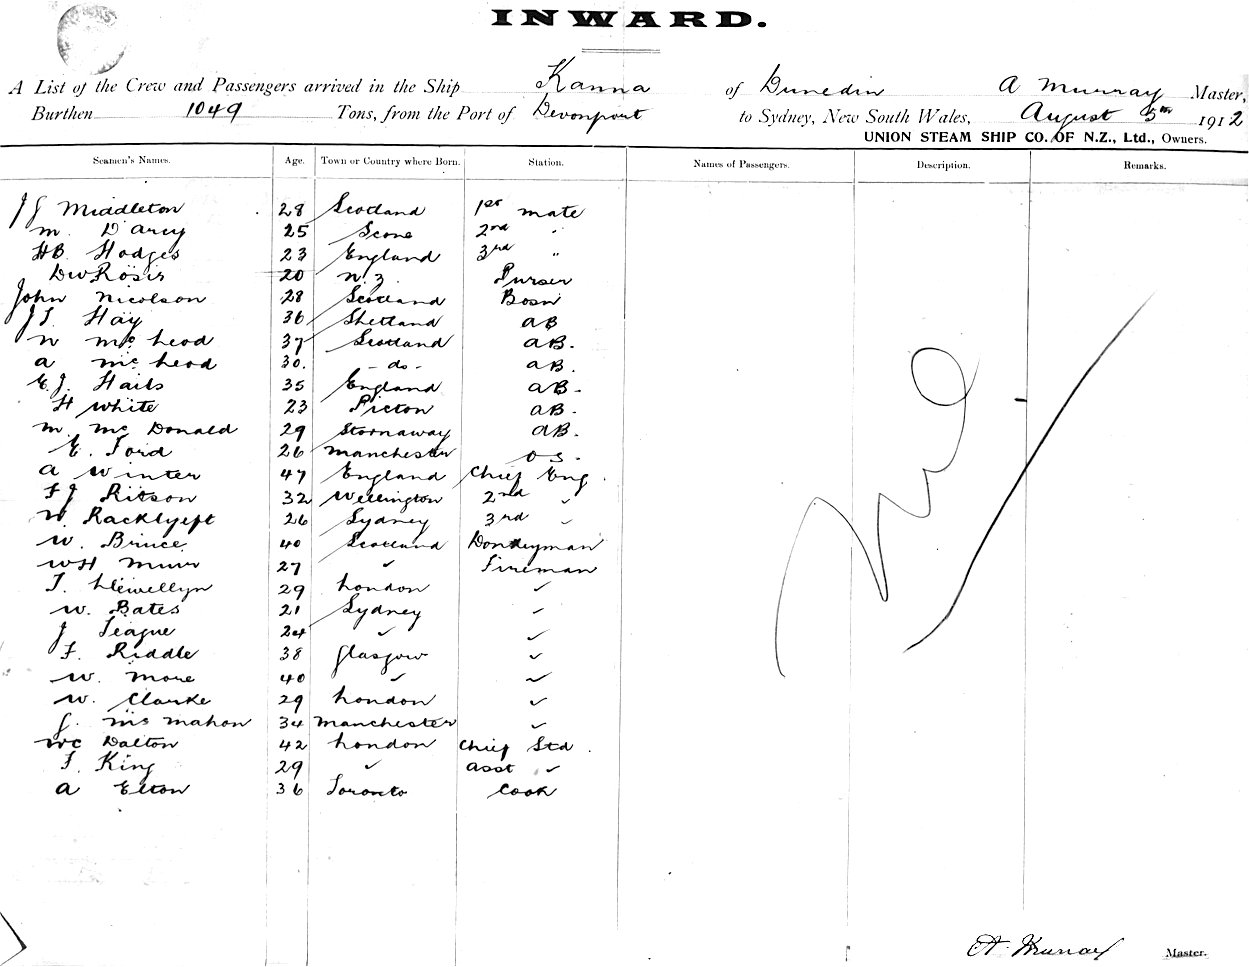 INWARD.
A List of the Crew and Passengers arrived in the Ship Kanna of Dunedin A Murray Master,
Burthen 1049 Tons, from the Port of Devonport to Sydney, New South Wales, August 5th 1912
UNION STEAM SHIP CO. OF N.Z., Ltd., Owners.
Seamen's Names. Age. Town or Country where Born. Station. Names of Passengers. Description. Remarks.
J J Middleton 28 Scotland 1st mate
M. D'arcy 25 Scone 2nd "
HB Hodges 23 England 3rd "
20 N.Z. Purser
John Nicolson 28 Scotland Bosn
Hay 36 Shetland AB
N Mc Leod 37 Scotland AB.
A Mc Leod 30. - do - AB.
E.J. Hails 35 England AB.
H White 23 Picton AB.
M. Mc Donald 29 Stornaway AB.
E. Ford 26 Manchester O S.
A Winter 47 England Chief Eng.
FJ Ritson 32 Wellington 2nd "
W. 26 Sydney 3rd "
W. Bruce 40 Scotland Donkeyman
WH Muir 27 " Fireman
T. Llewellyn 29 London "
W. Bates 21 Sydney "
J Teague 24 " "
F. Riddle 38 Glasgow "
W. More 40 " "
W. Clarke 29 London "
J. Mc Mahon 34 Manchester "
WC Dalton 42 London Chief Std.
F. King 29 " Asst "
A Elton 36 Toronto Cook
Nil
A. Murray Master.